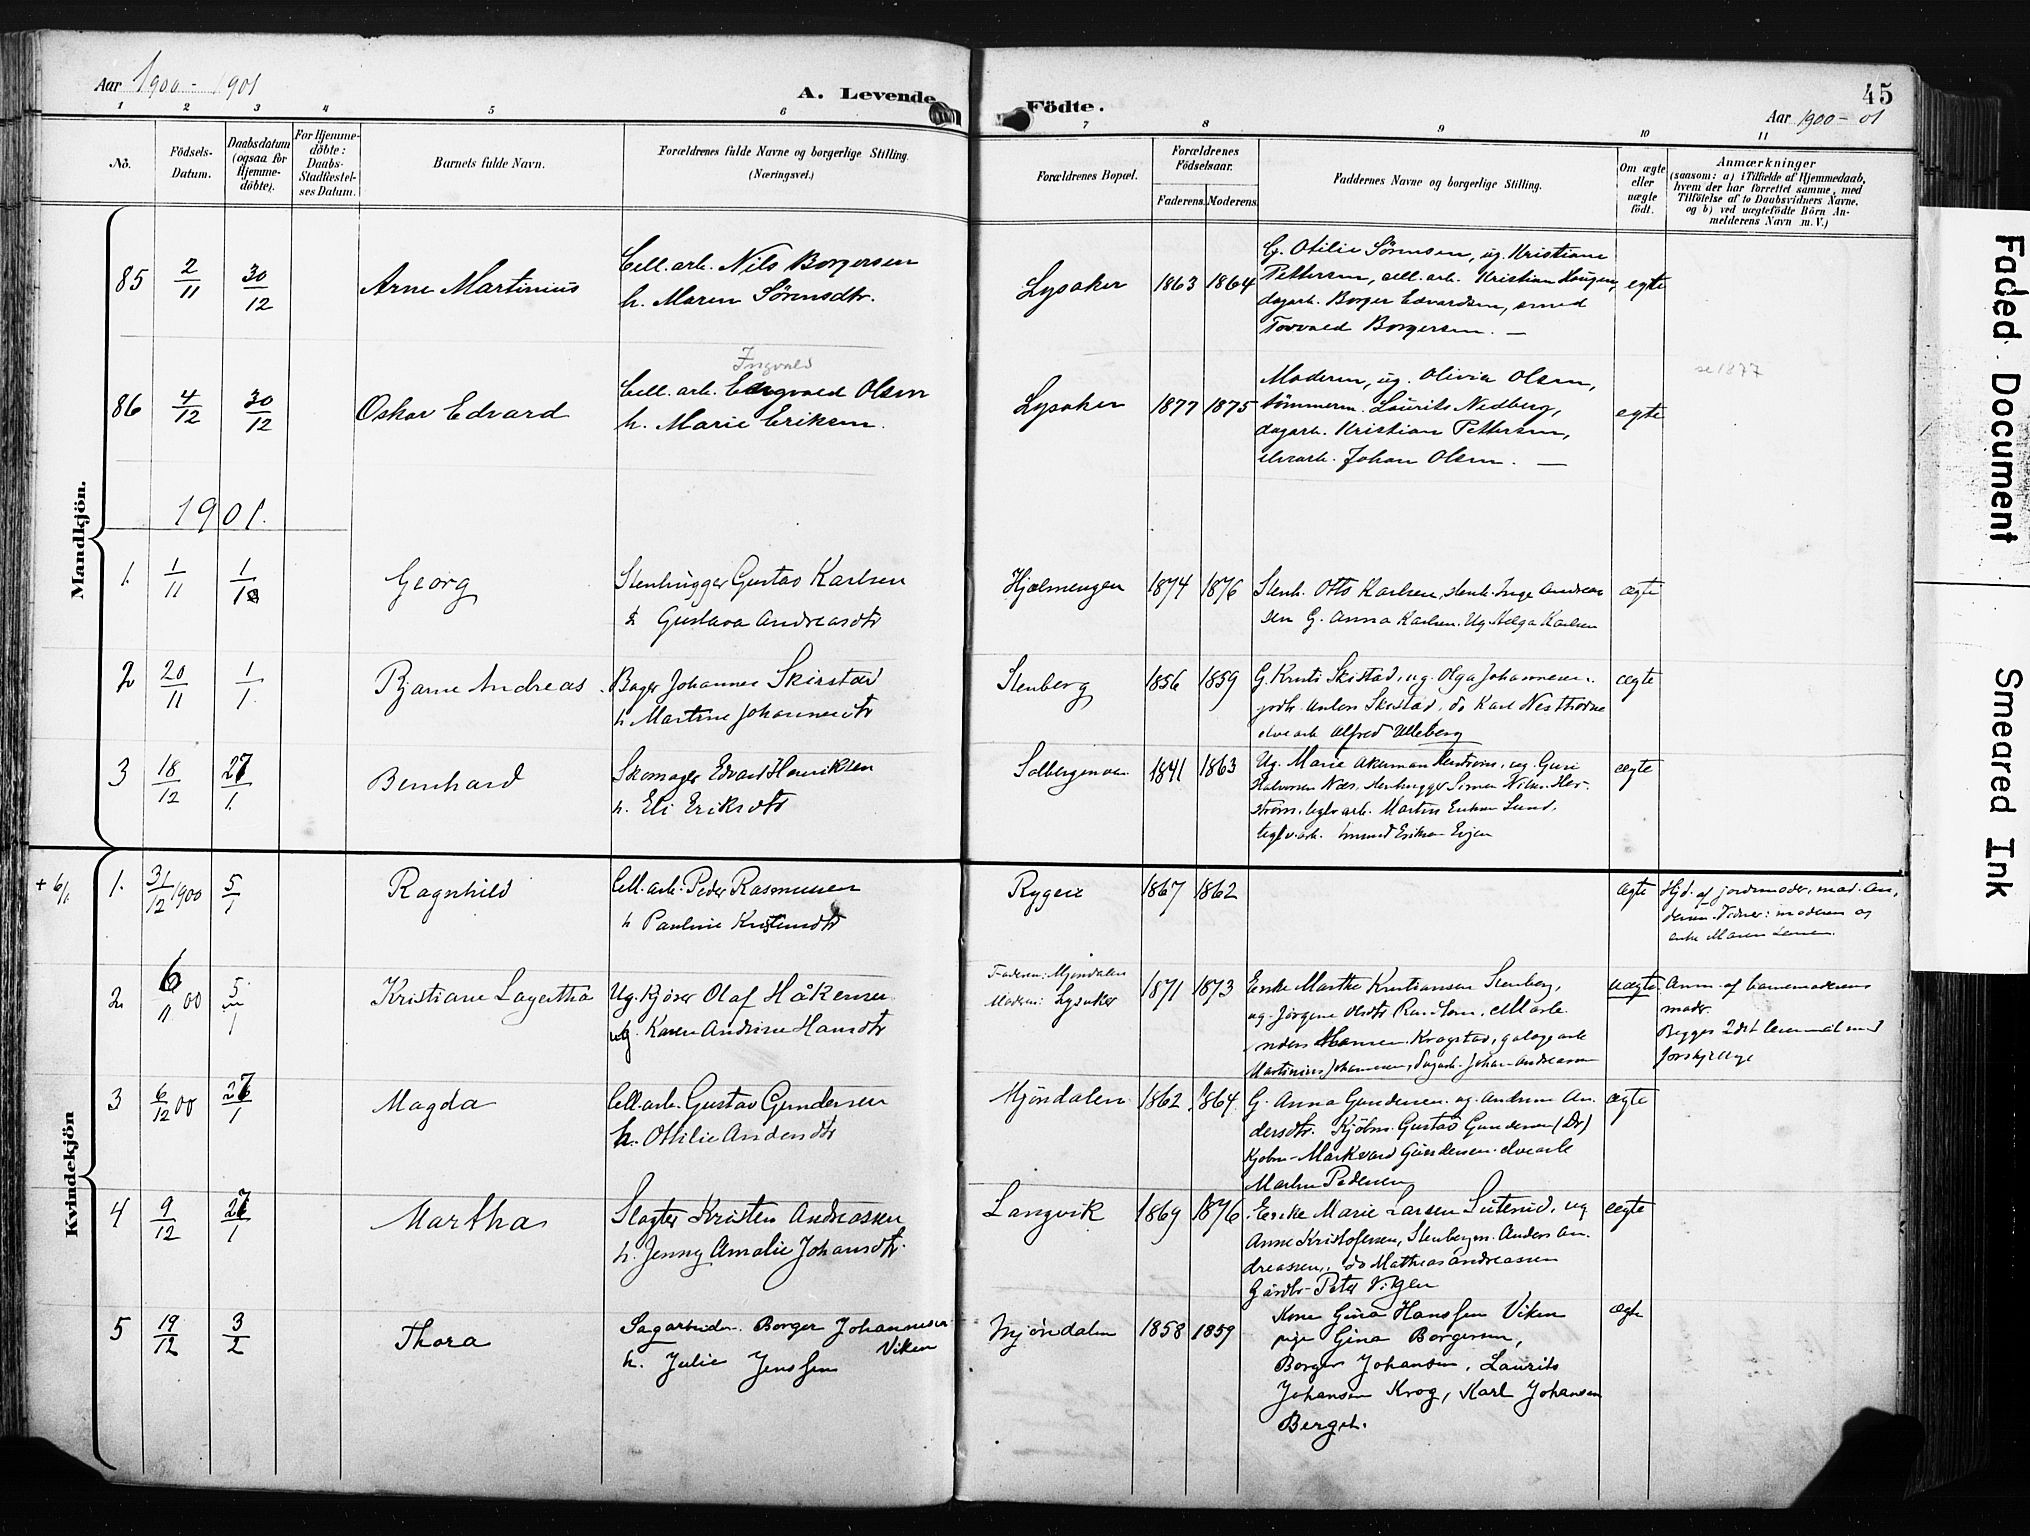 Aar 1900 - 1901
A. Levende Födte.
45
Aar 1900 - 01
1 2 3 4 5 6 7 8 9 10 11
No.
Födsels-
Datum.
Daabsdatum
(ogsaa for
Hjemme-
döbte).
For Hjemme-
döbte:
Daabs-
Stadfestel-
ses Datum.
Barnets fulde Navn.
Forældrenes fulde Navne og borgerlige Stilling.
(Næringsvei.)
Forældrenes Bopæl.
Forældrenes
Födselsaar.
Faderens. Moderens.
Faddernes Navne og borgerlige Stilling.
Om ægte
eller
uægte
födt.
Anmærkninger
(saasom: a) i Tilfælde af Hjemmedaab,
hvem der har forrettet samme, med
Tilföielse af to Daabsvidners Navne,
og b) ved uægtefödte Börn An-
melderens Navn m. V.)
Mandkjön.
85 2/11 30/12 Arne Martinius
Cell. arb. Nils Borgersen
h. Maren Sörensdtr.
Lysaker 1863 1864
G. Otilie Sörensen, ug. Kristiane
Pettersen, cell. arb. Kristian Haugen,
dagarb. Borger Edvardsen, smed
Torvald Borgersen. —
egte
86 4/12 30/12 Oskar Edvard
Ingvald
Cell. arb. Engvald Olsen
h. Marie Eriksen.
Lysaker 1877 1875
Moderen, ug. Olivia Olsen,
tömmerm. Laurits Nedberg,
dagarb. Kristian Pettersen,
elvearb. Johan Olsen. —
egte
se 1877
1901.
1. 1/11 1/1 Georg
Stenhugger Gustav Karlsen
h Gustava Andreasdtr
Hjælmengen 1874 1876
Stenh. Otto Karlsen, stenh. Inge Andrea
sen G. Anna Karlsen. Ug Helga Karlsen
ægte
2 20/11 1/1. Bjarne Andreas.
Bager Johannes Skistad
h. Martine Johannesdtr
Stenberg 1856 1859
G. Kristi Skistad, ug. Olga Johannesen.
gdbr. Anton Skistad, do Karl
elvearb Alfred Ulleberg
ægte
3 18/12 27/1. Bernhard
Skomager Edvard Henriksen
h. Eli Eriksdtr
Solbergmoen 1841 1863
Ug. Marie Akerman, ug. Guri
Halvorsen Næs, stenhugger Simen Nilsen Her-
ström, teglv. arb. Martin Eriksen Lund,
teglv. arb. Amund Eriksen Evjen
ægte
Kvindekjön
+ 6/1. 1. 31/12 1900 5/1 Ragnhild
Cell. arb. Peder Rasmussen
h Pauline Kristensdtr
Ryggen 1867 1862
ægte
Hjd. af jordmoder, mad. An-
dersen. Vidner: moderen og
enke Maren Larsen.
2. 6/11 00 5/1 Kristiane Lagertha
Ug. Kjörer Olaf Håkensen
ug. Karen Andrine Hansdtr
Faderen: Mjöndalen
Moderen: Lysaker
1871 1873
Enke Marthe Kristiansen Stenberg,
ug. Jörgine Olsdtr, cell. arb.
Anders Hansen Kragstad,
Martinius Johannesen, dagarb. Johan Andreasen
uægte
Anm. af barnemoderens
moder.
Begges 2det leiermaal med
forskjellige
3 6/12 00 27/1 Magda
Cell. arb. Gustav Gundersen
h. Ottilie Andersdtr
Mjöndalen 1862 1864
G. Anna Gundersen, ug. Andrine An-
dersdtr. Kjöbm. Gustav Gundersen (Dr)
Kjobm. Markvard Gundersen, elvearb
Martin Pedersen
ægte
4 9/12 27/1 Martha
Slagter Kristen Andreassen
h. Jenny Amalie Johansdtr.
Langvik 1869 1876
Enke Marie Larsen Süterud, ug
Anne Kristofersen, Stenbergm. Anders An-
dreassen, do Mathias Andreassen
Gårdbr. Peter Vigen
ægte
5 19/12 3/2 Thora
Sagarbeider. Borger Johannesen
Viken
h. Julie Jenssen
Mjöndalen 1858 1859
Kone Gina Hanssen Viken
pige Gina Borgersen,
Borger Johansen, Laurits
Johansen Krog, Karl Johansen
Berget.
ægte
Faded Document
Smeared Ink